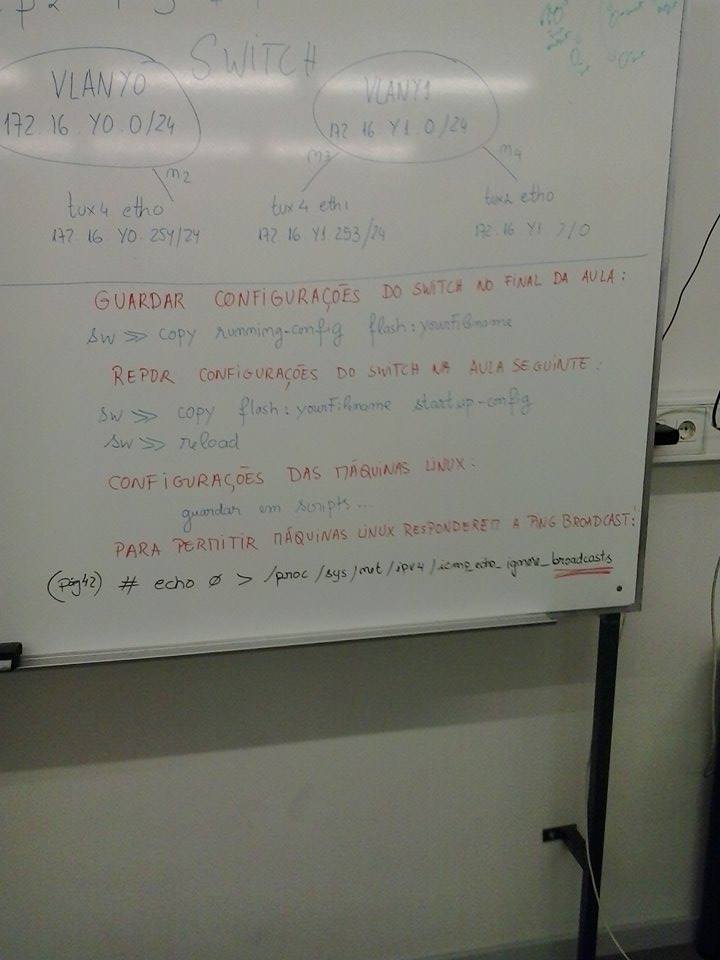 SWITCH
VLANY0
172.16.Y0.0/24
VLANY1
172.16.Y1.0/24
m2
m3
m4
tux4 eth0
172.16.Y0.254/24
tux4 eth1
172.16.Y1.253/24
tux2 eth0
172.16.Y1
GUARDAR CONFIGURAÇÕES DO SWITCH NO FINAL DA AULA:
sw >> copy running-config flash:yourfilename
REPOR CONFIGURAÇÕES DO SWITCH NA AULA SEGUINTE:
sw >> copy flash:yourfilename startup-config
sw >> reload
CONFIGURAÇÕES DAS MÁQUINAS LINUX:
guardar em scripts...
PARA PERMITIR MÁQUINAS LINUX RESPONDEREM A PING BROADCAST:
(pág42) # echo 0 > /proc/sys/net/ipv4/icmp_echo_ignore_broadcasts